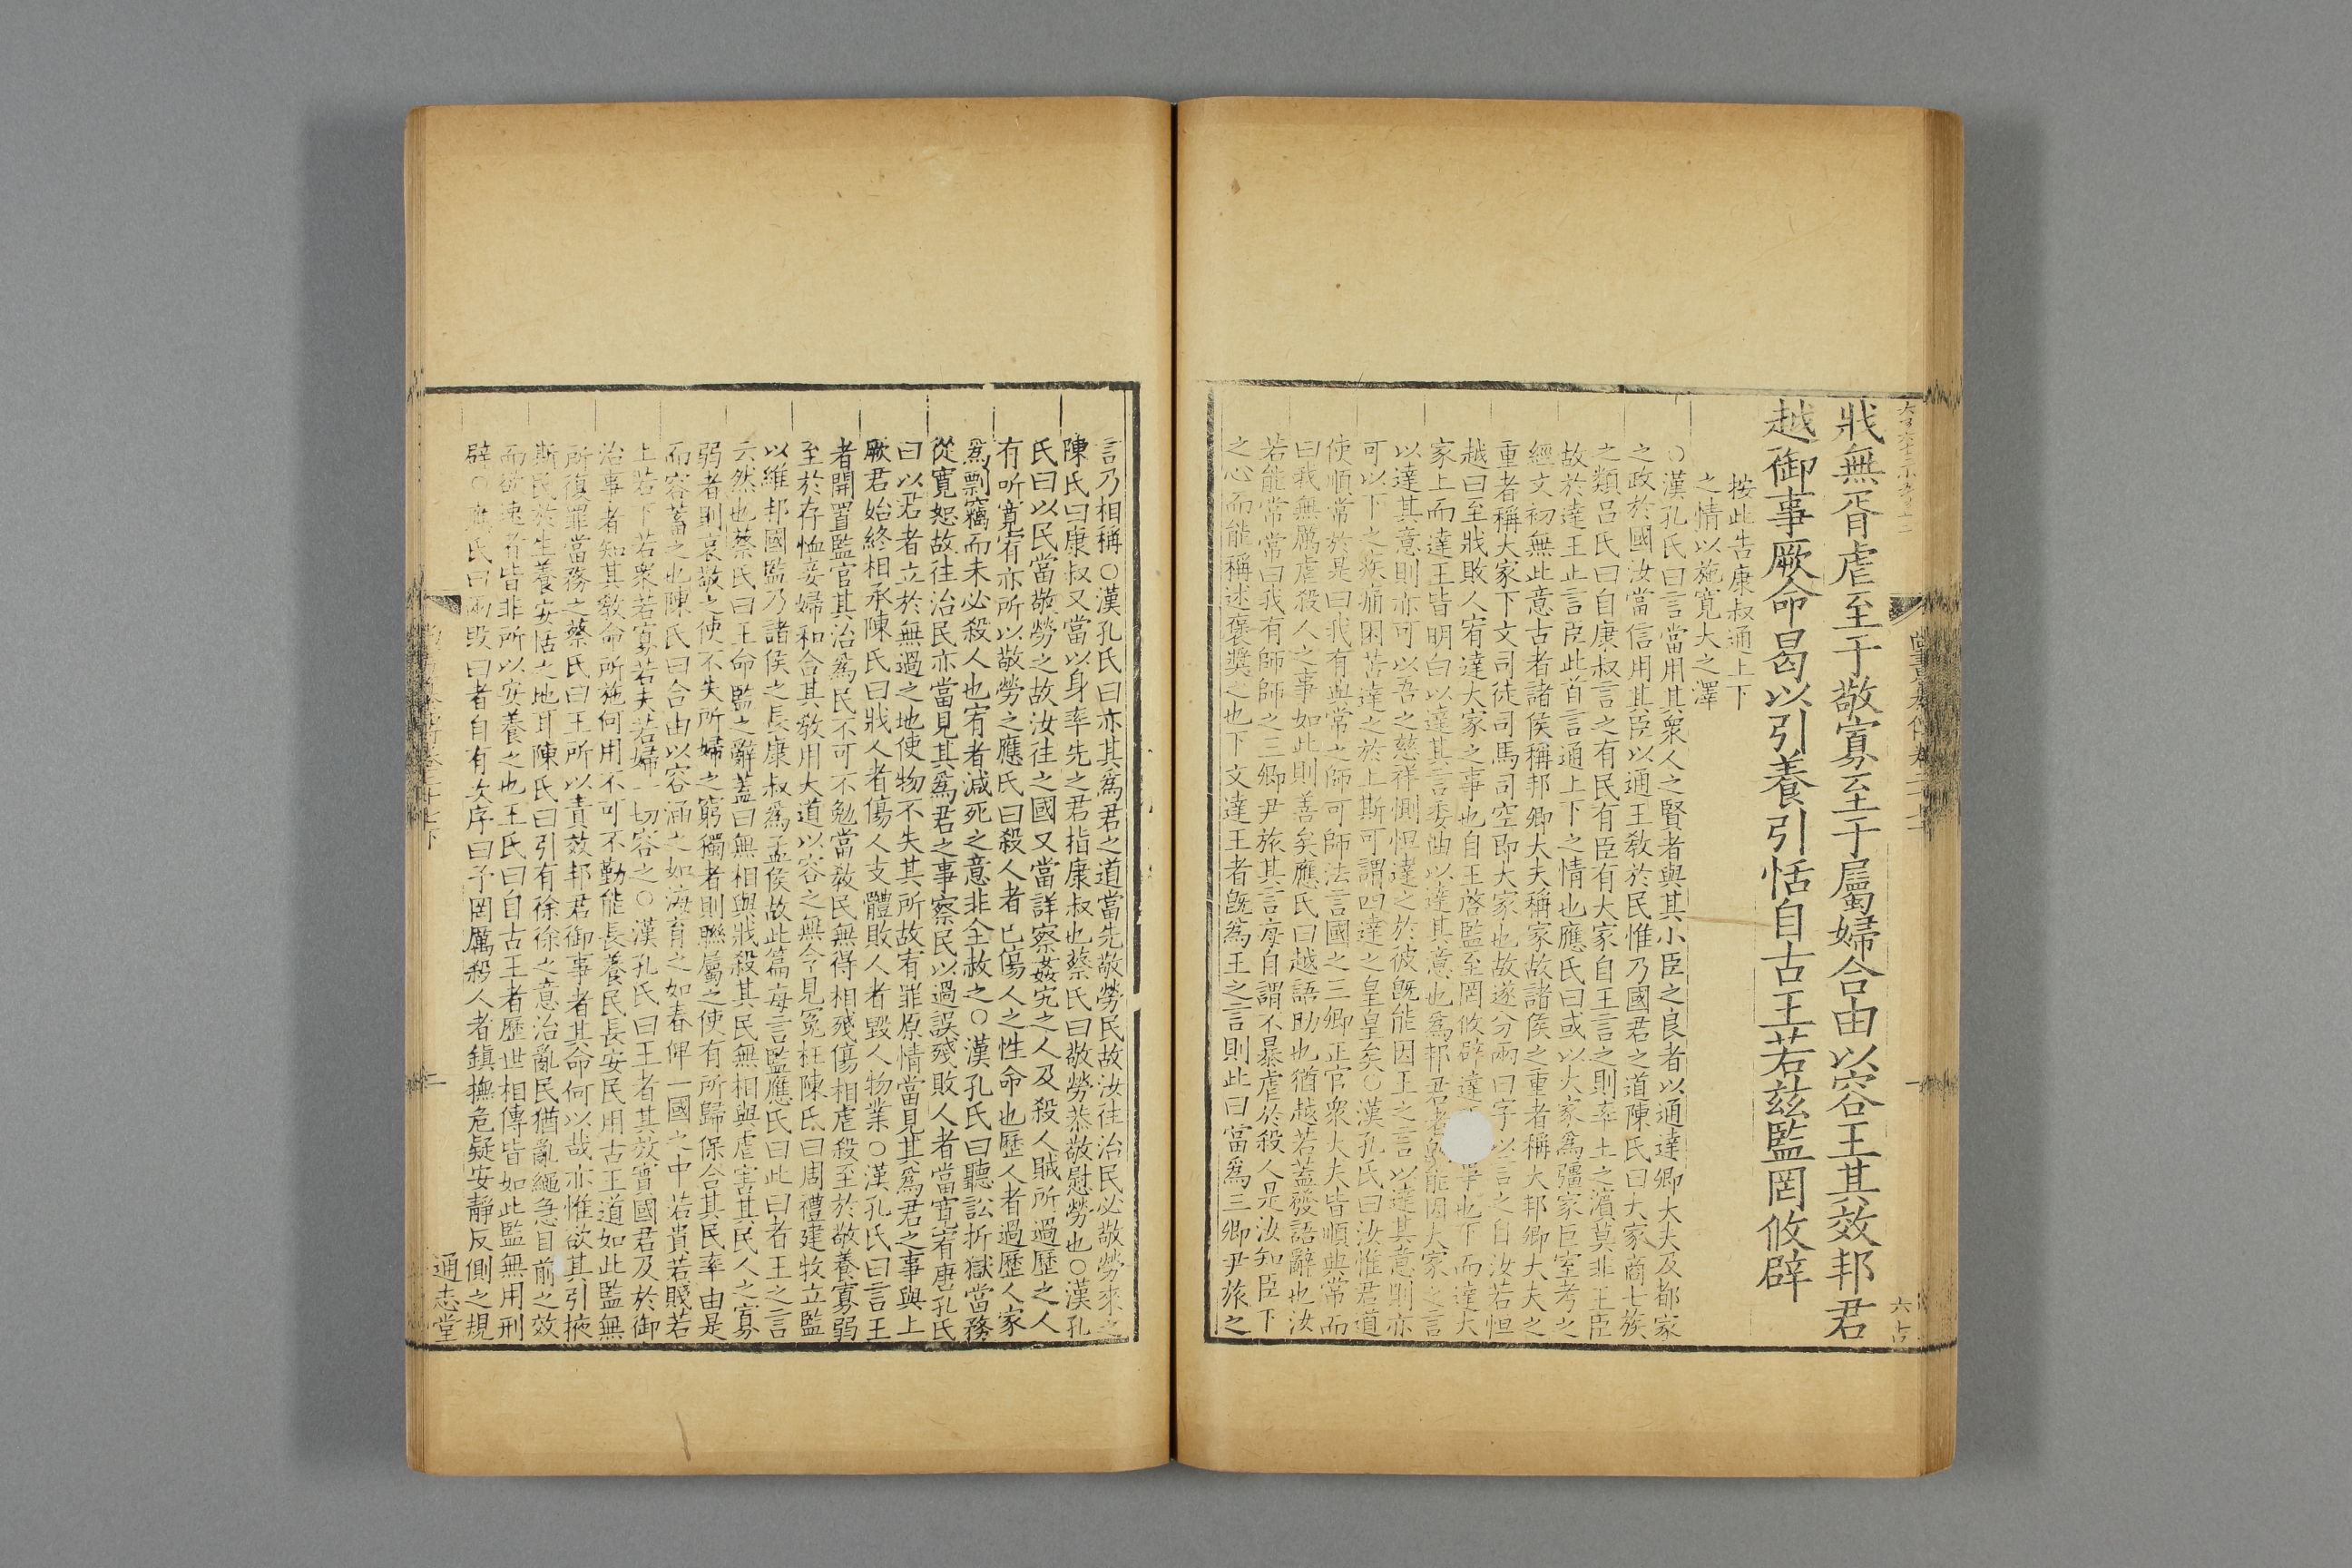 戕無胥虐至于敬寡至于屬婦合由以容王其效邦君
越御事厥命曷以引養引恬自古王若茲監罔攸辟
按此告康叔通上下
之情以施寬大之澤
○漢孔氏曰言當用其衆人之賢者與其小臣之良者以通達卿大夫及都家
之政於國汝當信用其臣以通王敎於民惟乃國君之道陳氏曰大家商七族
之類呂氏曰自康叔言之有民有臣有大家自王言之則率土之濱莫非王臣
故於達王止言臣此首言通上下之情也應氏曰或以大家爲彊家巨室考之
經文初無此意古者諸侯稱邦卿大夫稱家故諸侯之重者稱大邦卿大夫之
重者稱大家下文司徒司馬司空即大家也故遂分兩曰字以言之自汝若恒
越曰至戕敗人宥達大家之事也自王啓監至罔攸辟達事也下而達大
家上而達王皆明白以達其言委曲以達其意也爲邦君者能因大家之言
以達其意則亦可以吾之慈祥惻怛達之於彼旣能因王之言以達其意則亦
可以下之疾痛困苦達之於上斯可謂四達之皇皇矣○漢孔氏曰汝惟君道
使順常於是曰我有與常之師可師法言國之三卿正官衆大夫皆順典常而
曰我無厲虐殺人之事如此則善矣應氏曰越語助也猶越若蓋發語辭也汝
若能常常曰我有師師之三卿尹旅其言每自謂不暴虐於殺人是汝知臣下
之心而能稱述襃奬之也下文達王者旣爲王之言則此曰當爲三卿尹旅之
言乃相稱○漢孔氏曰亦其爲君之道當先敬勞民故汝往治民必敬勞來之
陳氏曰康叔又當以身率先之君指康叔也蔡氏曰敬勞恭敬慰勞也○漢孔
氏曰以民當敬勞之故汝往之國又當詳察姦宄之人及殺人賊所過歷之人
有所寬宥亦所以敬勞之應氏曰殺人者已傷人之性命也歷人者過歷人家
爲剽竊而未必殺人也宥者減死之意非全赦之○漢孔氏曰聽訟折獄當務
從寬恕故往治民亦當見其爲君之事察民以過誤殘敗人者當寬宥唐孔氏
曰以君者立於無過之地使物不失其所故有罪原情當見其爲君之事與上
厥君始終相承陳氏曰戕人者傷人支體敗人者毀人物業○漢孔氏曰言王
者開置監官其治爲民不可不勉當敎民無得相殘傷相虐殺至於敬養寡弱
至於存恤妾婦和合其敎用大道以容之無令見冤枉陳氏曰周禮建牧立監
以維邦國監乃諸侯之長康叔爲孟侯故此篇每言監應氏曰此曰者王之言
云然也蔡氏曰王命監之辭蓋曰無相與戕殺其民無相與虐害其民人之寡
弱者則哀敬之使不失所婦之窮獨者則聯屬之使有所歸保合其民率由是
而容蓄之也陳氏曰合由以容涵之如海育之如春俾一國之中若貴若賤若
上若下若衆若寡若夫若婦一切容之○漢孔氏曰王者其效實國君及於御
治事者知其敎命所施何用不可不勤能長養民長安民用古王道如此監無
所復罪當務之蔡氏曰王所以責效邦君御事者其命何以哉亦惟欲其引掖
斯民於生養安恬之地耳陳氏曰引有徐徐之意治亂民猶亂繩急目前之效
而欲速者皆非所以安養之也王氏曰自古王者歷世相傳皆如此監無用刑
辟○應氏曰兩曰者自有次序曰予罔厲殺人者鎮撫危疑安靜反側之規
通志堂